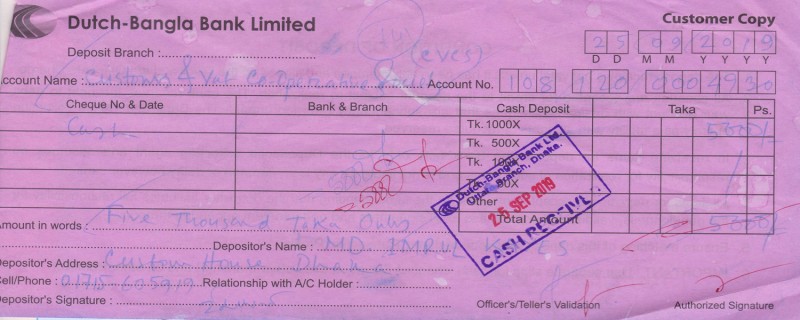 Dutch-Bangla Bank Limited
Customer Copy
Deposit Branch :
(evcs)
25 09 2019
D D M M Y Y Y Y
Account Name : Customs & Vat Co-Operative Society Account No. 108 120 0004930
Cheque No & Date Bank & Branch Cash Deposit Taka Ps.
Cash
Tk. 1000X 5000/-
Tk. 500X
Tk. 100X
Other
Total Amount 5000/-
Dutch-Bangla Bank Ltd.
Branch, Dhaka.
25 SEP 2019
CASH RECEIVE
Amount in words : Five Thousand Taka Only
Depositor's Name : MD. IMRUL KAYES
Depositor's Address : Custom House Dhaka
Cell/Phone : 01715 605919 Relationship with A/C Holder :
Depositor's Signature :
Officer's/Teller's Validation Authorized Signature